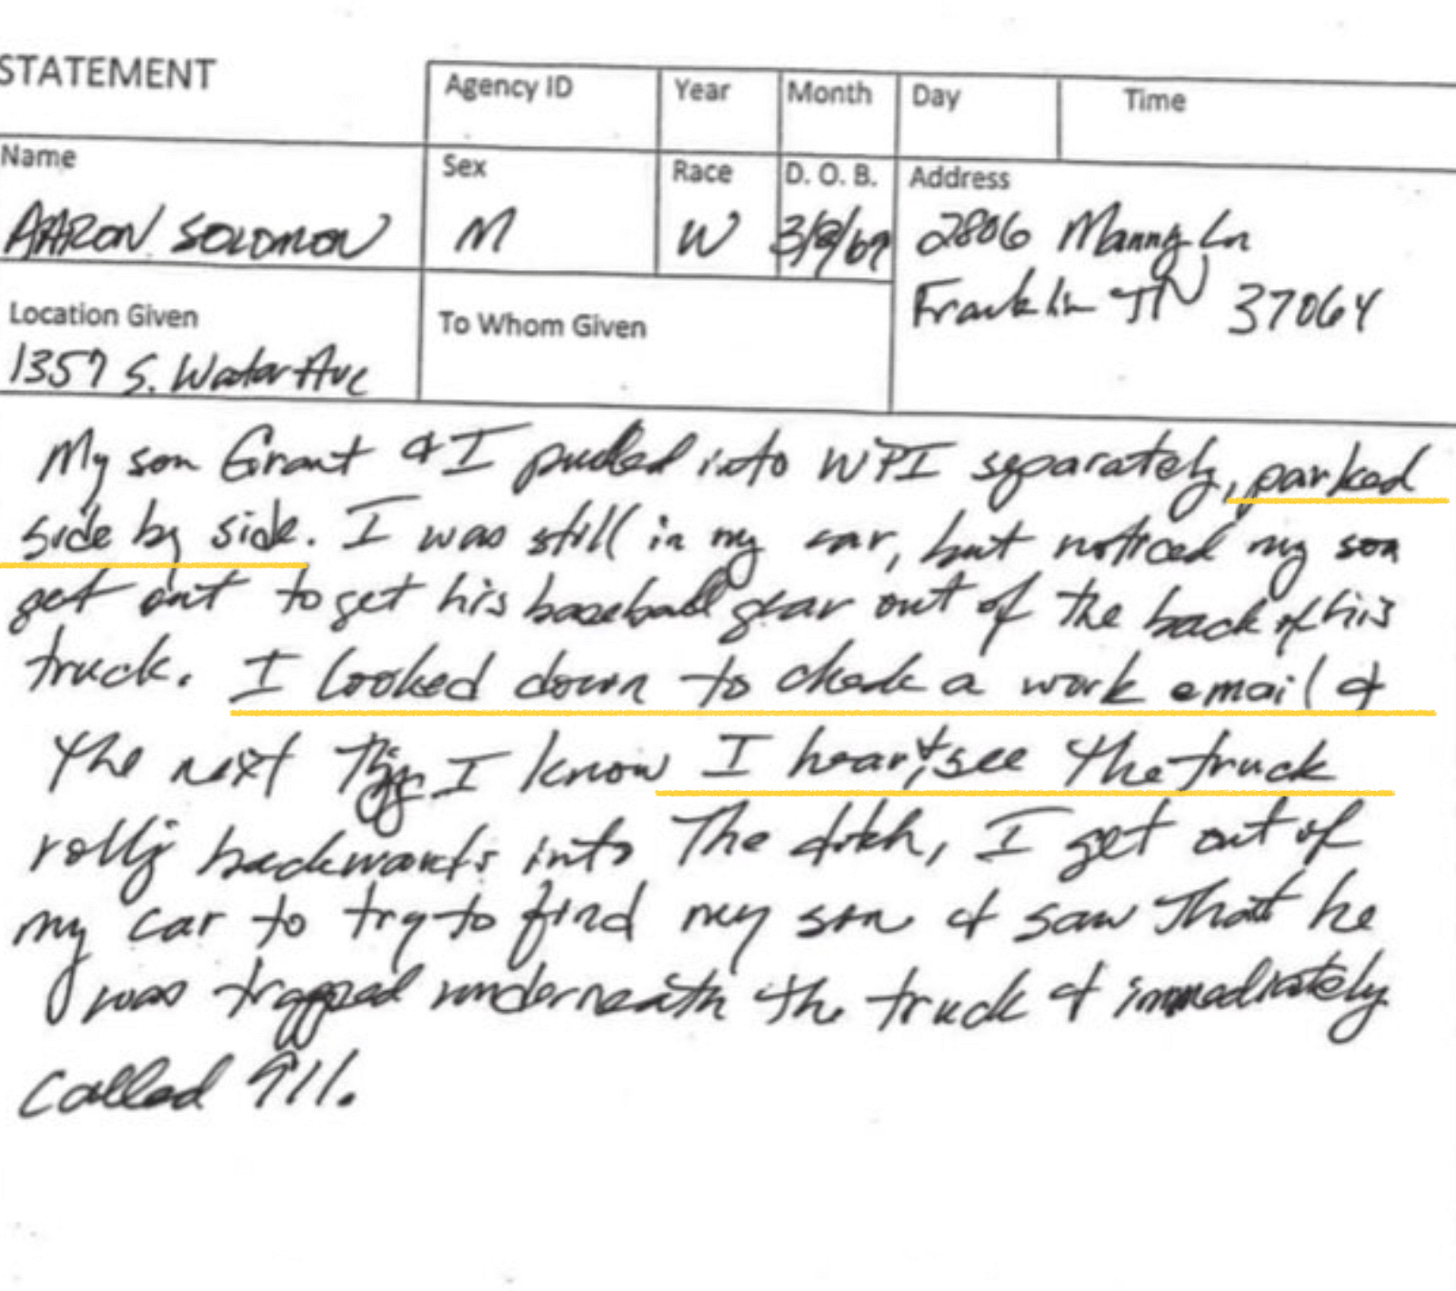 STATEMENT
Agency ID Year Month Day Time
Name Sex Race D. O. B. Address
AARON SOLOMON M W 3/8/67 2806 Manny Ln
Franklin TN 37064
Location Given To Whom Given
1357 S. Water Ave
My son Grant & I pulled into WPI separately, parked
side by side. I was still in my car, but noticed my son
get out to get his baseball gear out of the back of his
truck. I looked down to check a work email &
the next thing I know I hear & see the truck
rolling backwards into the ditch, I get out of
my car to try to find my son & saw that he
was trapped underneath the truck & immediately
called 911.